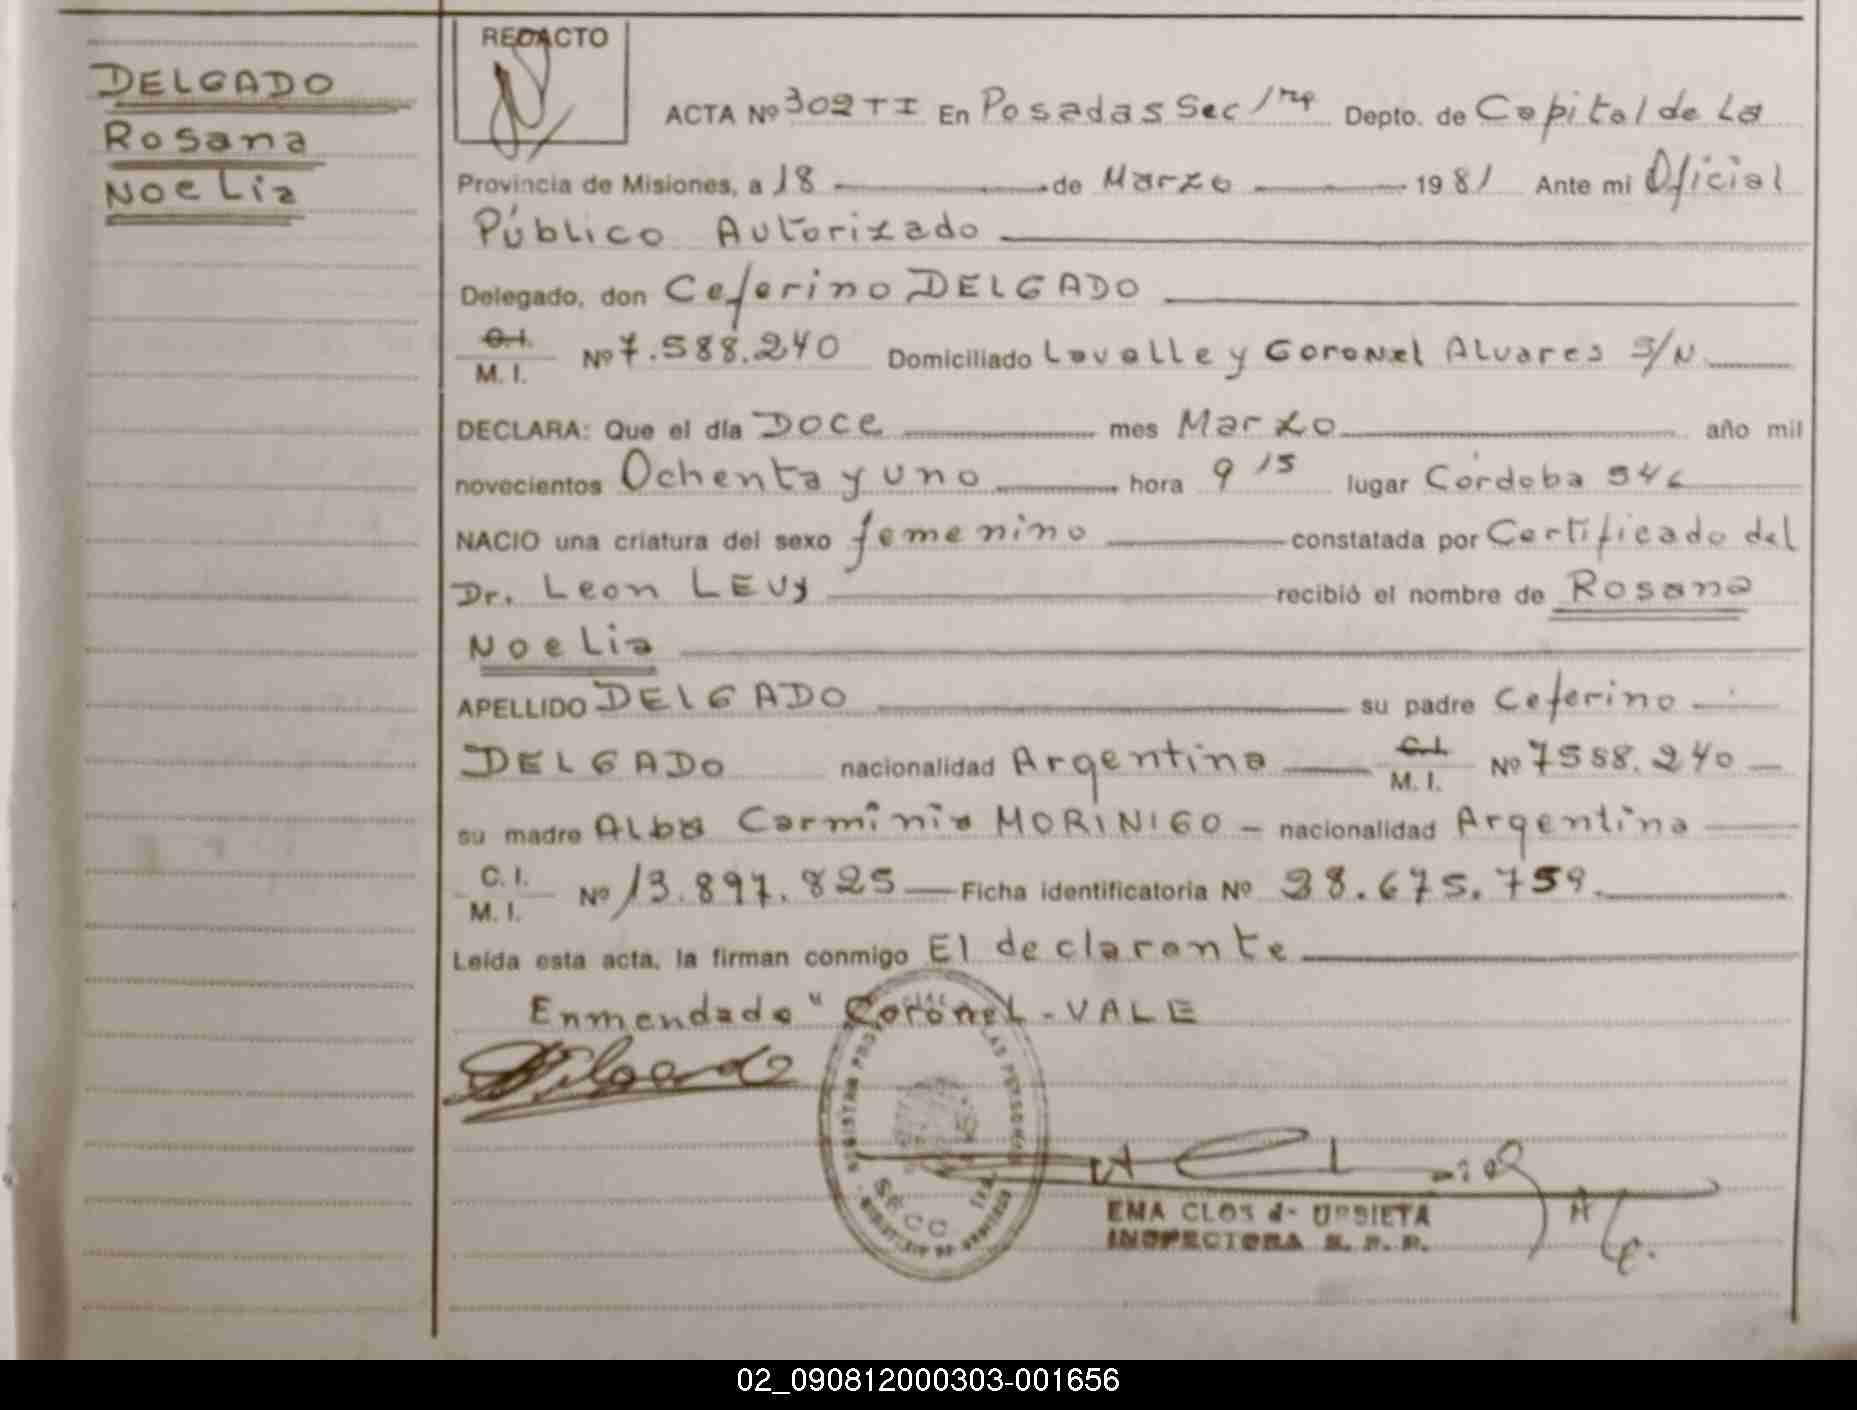 DELGADO
Rosana
Noelia
REDACTO
ACTA Nº 302 TI En Posadas Sec 1ra Depto. de Capital de La
Provincia de Misiones, a 18 de Marzo 1981 Ante mi Oficial
Público Autorizado
Delegado, don Ceferino DELGADO
C.I.
M. I. Nº 7.588.240 Domiciliado Lavalle y Coronel Alvares S/N
DECLARA: Que el día DOCE mes Marzo año mil
novecientos Ochenta y uno hora 9 15 lugar Córdoba 546
NACIO una criatura del sexo femenino constatada por Certificado del
Dr. Leon LEVY recibió el nombre de Rosana
Noelia
APELLIDO DELGADO su padre Ceferino
DELGADO nacionalidad Argentina C.I. M. I. Nº 7588.240
su madre Alba Carminia MORINIGO - nacionalidad Argentina
C. I.
M. I. Nº 13.897.825 Ficha identificatoria Nº 28.675.759.
Leída esta acta, la firman conmigo El declarante
Enmendado "Coronel - VALE
Delgado
SECC. 1ra
EMA CLOS de URBIETA
INSPECTORA R. P. P.
02_090812000303-001656